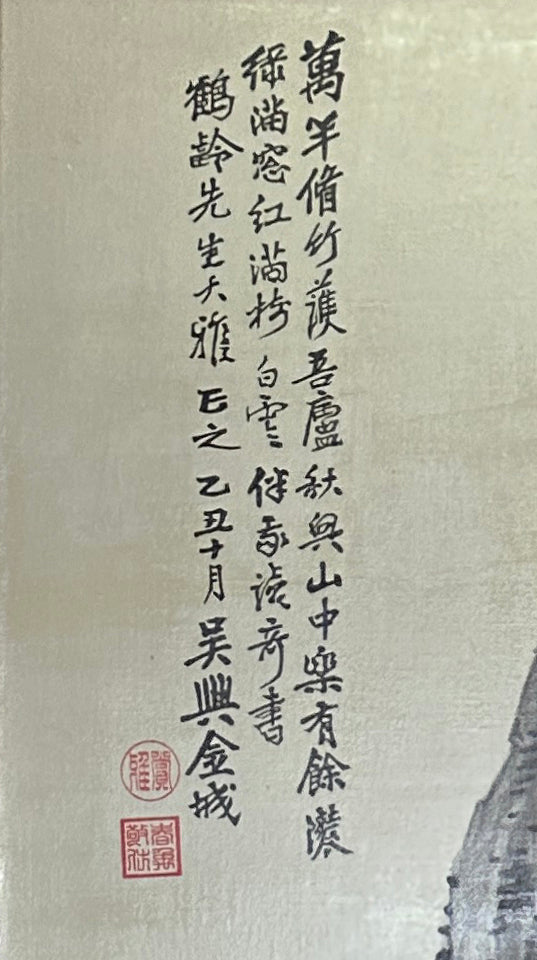 萬竿脩竹護吾廬秋與山中樂有餘
綠滿窓紅滿樹白雲伴我讀奇書
鶴齡先生大雅正之乙丑十月吳興金城